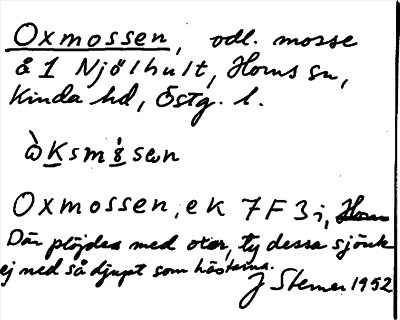 Oxmossen, odl. mosse
å 1 Njölhult, Horns sn,
Kinda hd, Östg. l.
Oxmossen, ek 7F3i, Horn
Där plöjdes med oxar, ty dessa sjönk
ej ned så djupt som hästarna.
J Sterner 1952